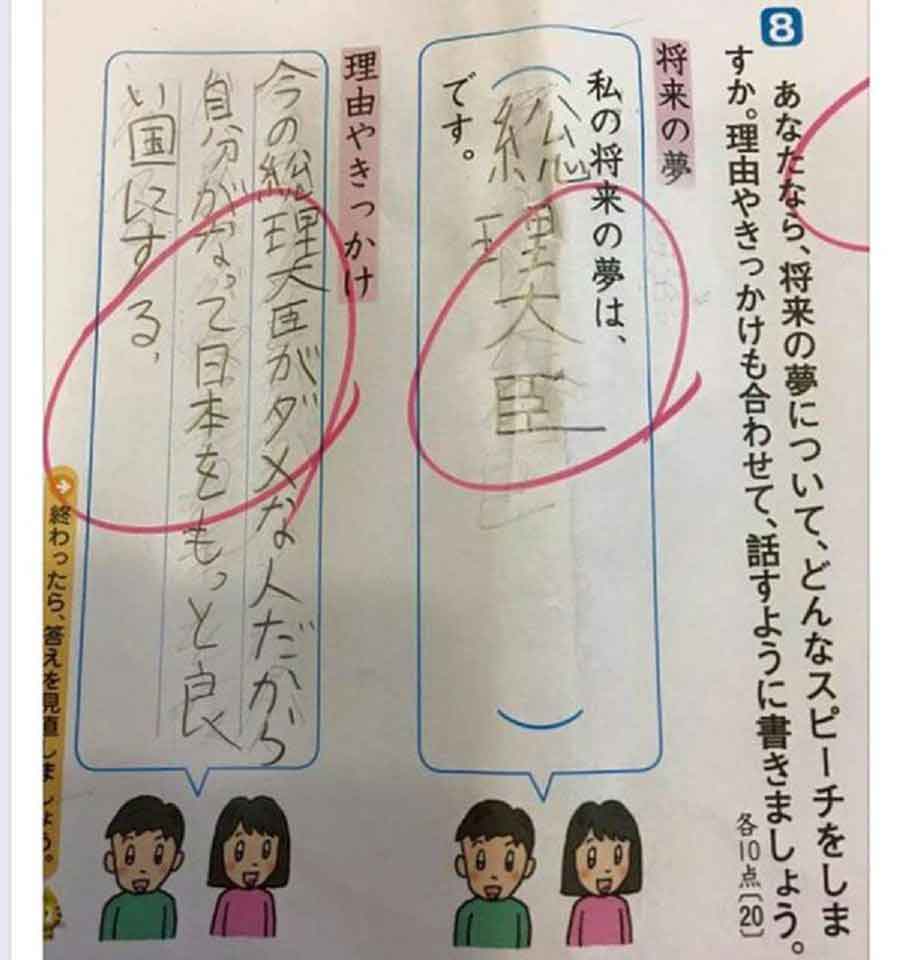 8
あなたなら、将来の夢について、どんなスピーチをしま
すか。理由やきっかけも合わせて、話すように書きましょう。
各10点〔20〕
将来の夢
私の将来の夢は、
(総理大臣)
です。
理由やきっかけ
今の総理大臣がダメな人だから
自分がなって日本をもっと良
い国にする、
終わったら、答えを見直しましょう。